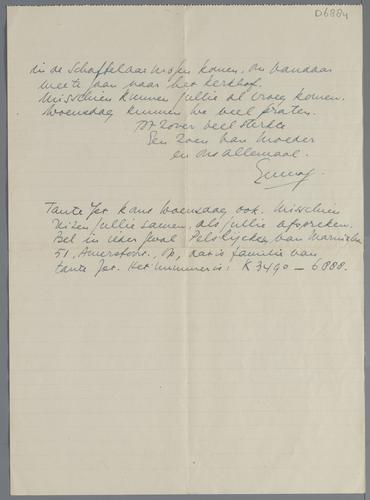 D6884
in de Schaffelaar mogen komen, om vandaar
mee te gaan naar het kerkhof.
Misschien kunnen jullie al vroeg komen.
Woensdag kunnen we veel praten.
Tot zover veel sterkte
Een zoen van Moeder
en ons allemaal.
Tante Jet komt Woensdag ook. Misschien
reizen jullie samen, als jullie afspreken.
Bel in ieder geval van
51, Amersfoort, op, dat is familie van
tante Jet. Het nummer is: K 3490 — 6888.